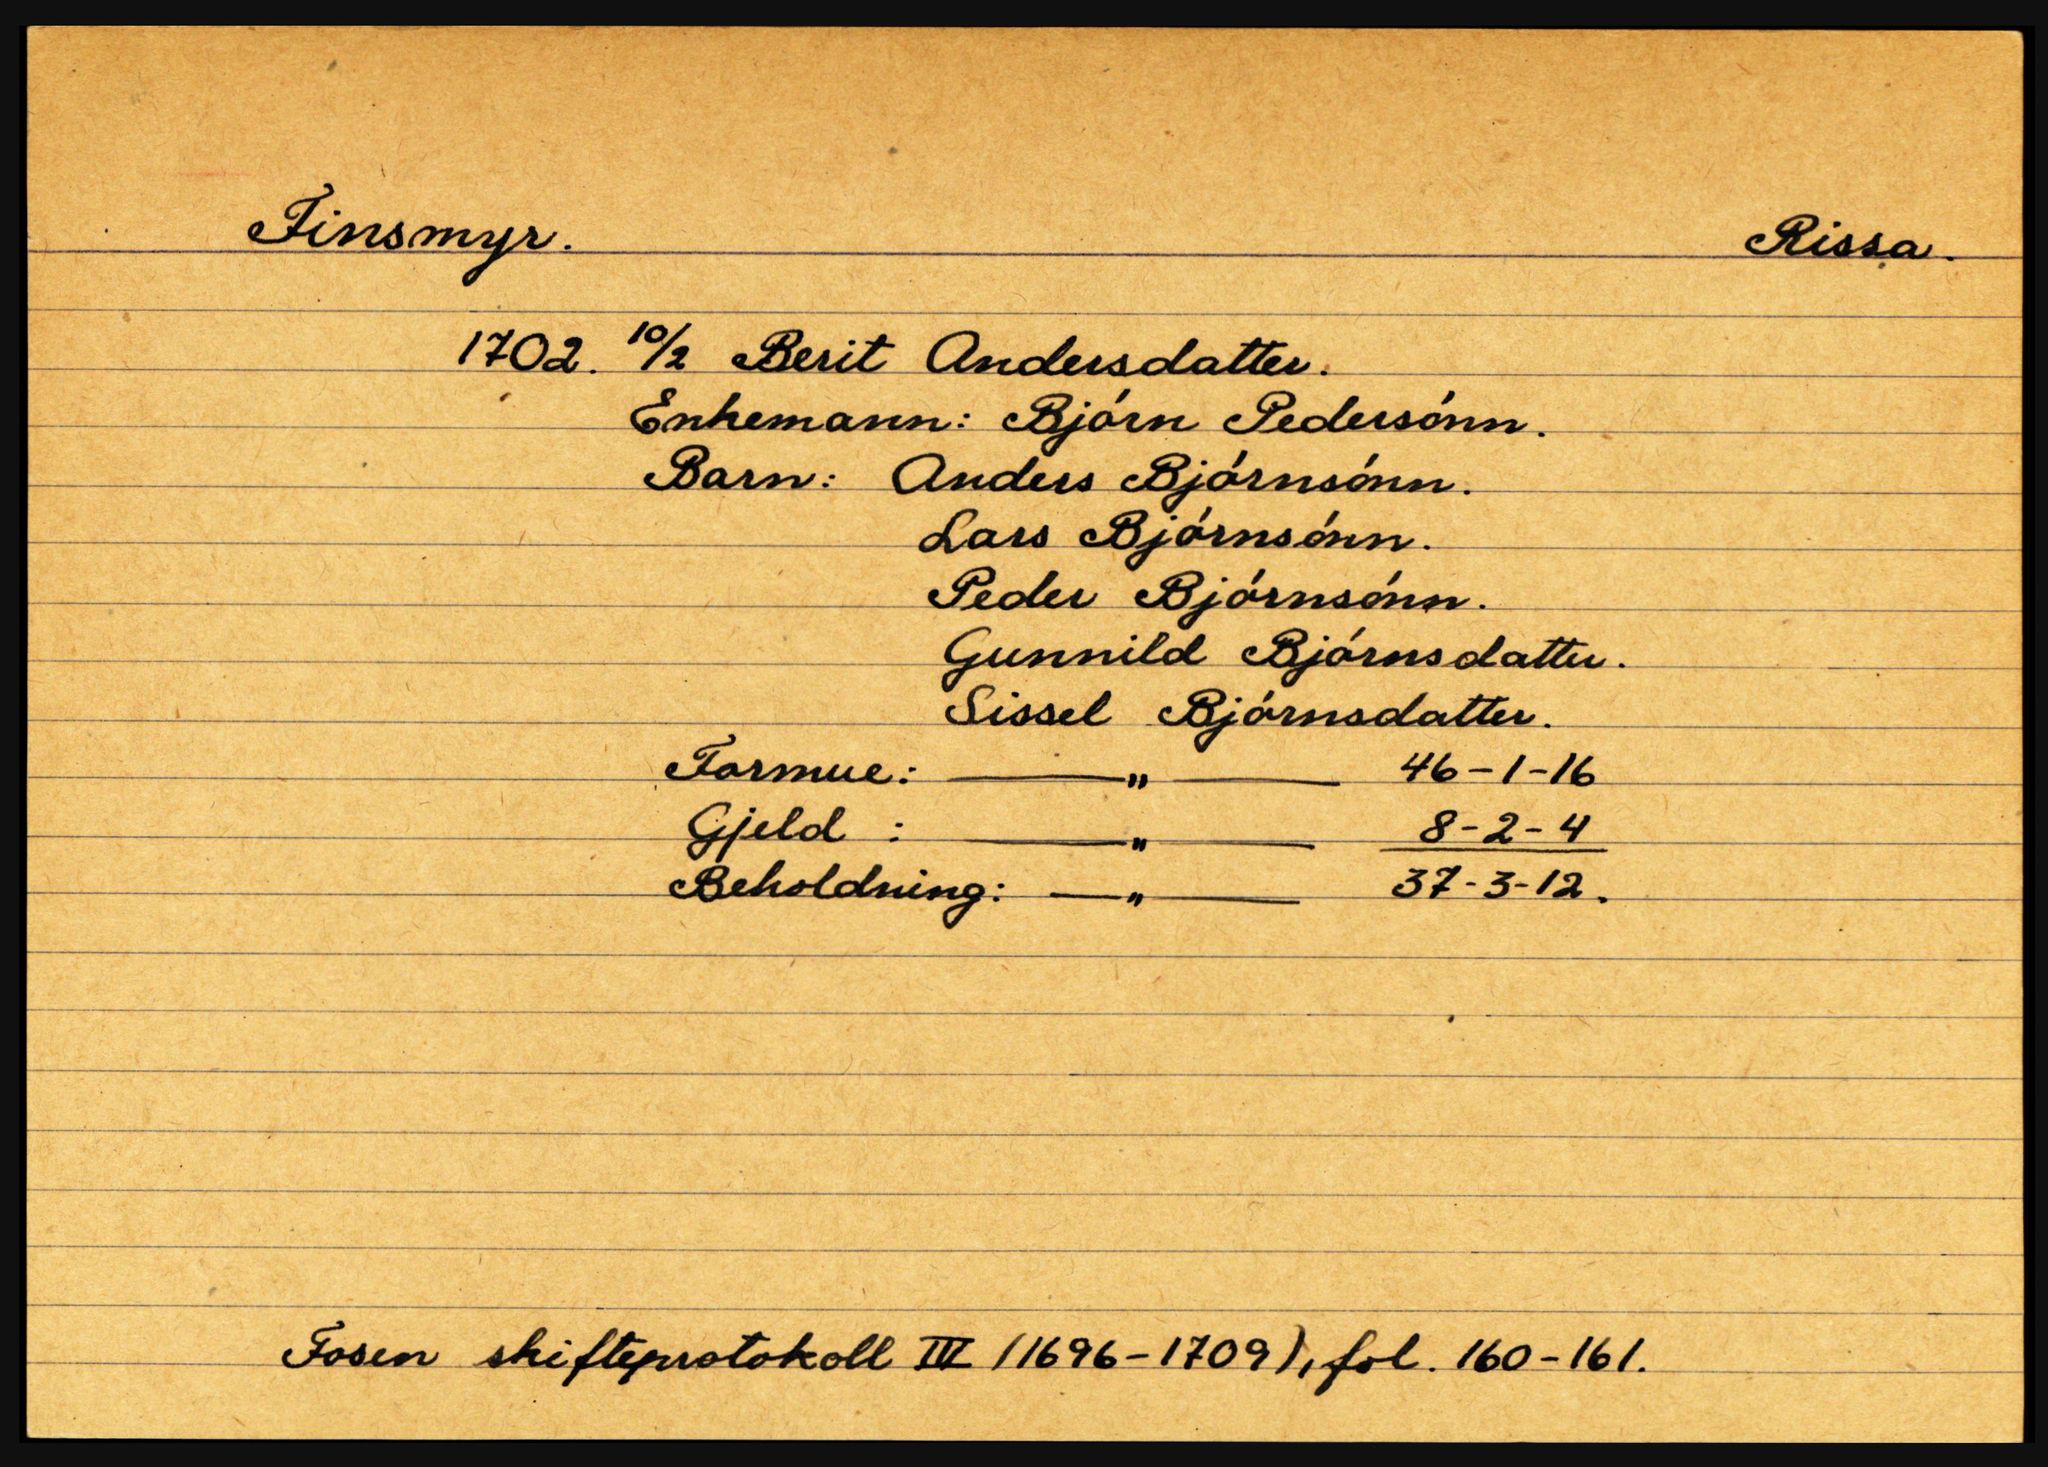 Finsmyr. Rissa.
1702. 10/2 Berit Andersdatter.
Enkemann: Bjórn Pedersónn.
Barn: Anders Bjórnsónn.
Lars Bjórnsónn.
Peder Bjórnsónn.
Gunnild Bjórnsdatter.
Sissel Bjórnsdatter.
Formue: — „ — 46-1-16
Gjeld : — „ — 8-2-4
Beholdning: — „ — 37-3-12.
Fosen skifteprotokoll III (1696-1709), fol. 160-161.